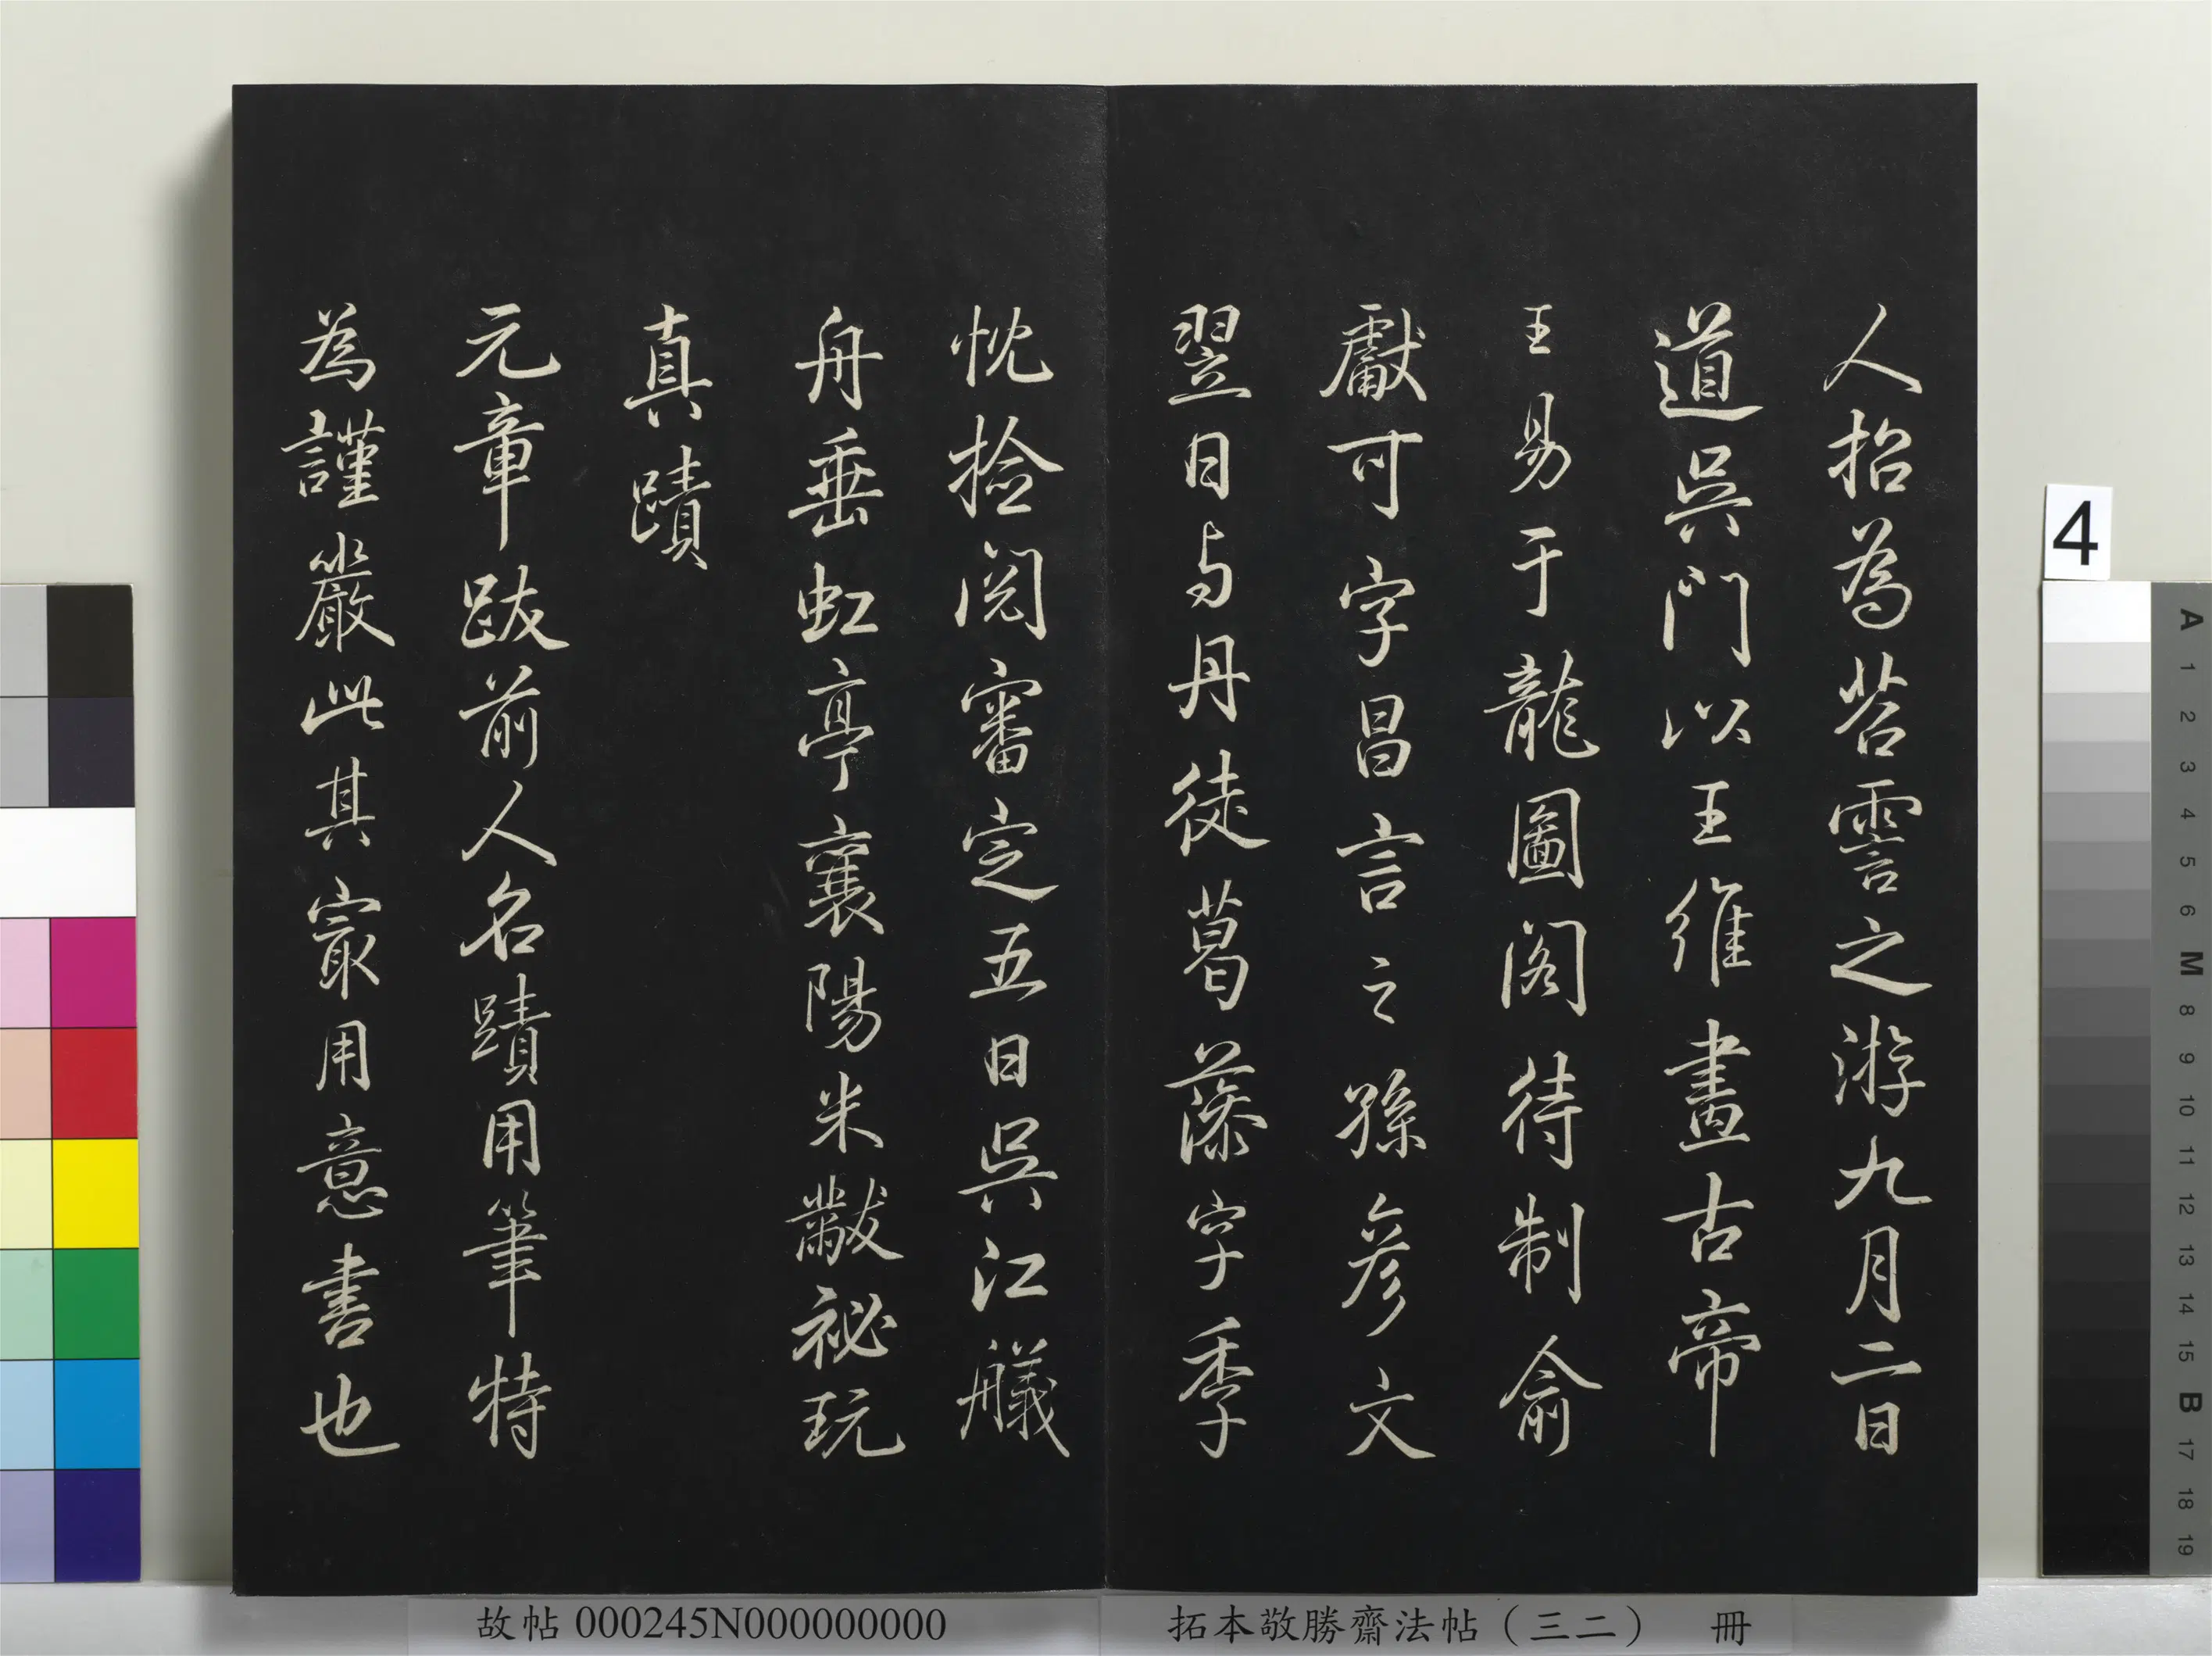 人招為苕霅之游九月二日
道吳門以王維畫古帝
王易于龍圖閣待制俞
獻可字昌言之孫彥文
翌日与丹徒葛藻字季
忱撿閱審定五日吳江艤
舟垂虹亭襄陽米黻祕玩
真蹟
元章跋前人名蹟用筆特
為謹嚴此其寂用意書也
故帖 000245N000000000
拓本敬勝齋法帖（三二） 冊
4
A 1 2 3 4 5 6 M 8 9 10 11 12 13 14 15 B 17 18 19